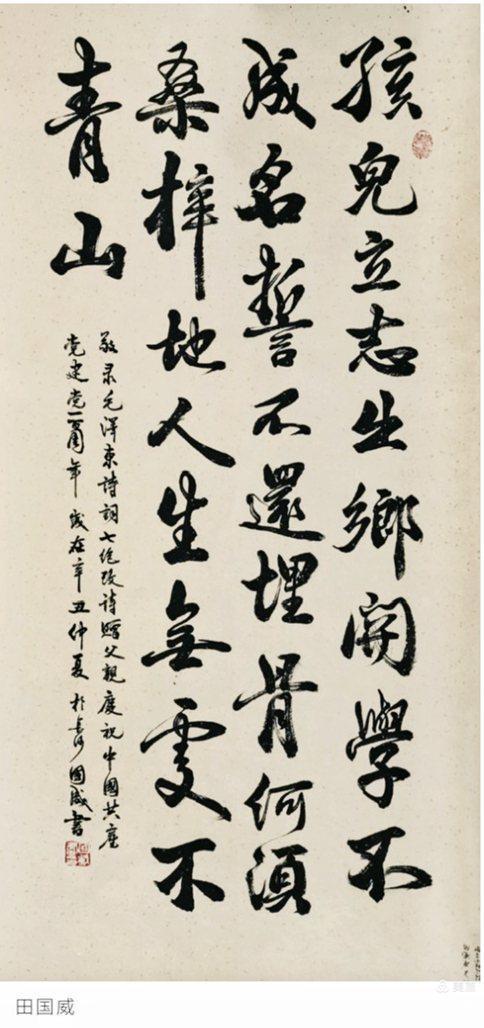 孩兒立志出鄉関學不
成名誓不還埋骨何須
桑梓地人生無處不
青山
敬录毛澤東诗詞七绝改诗赠父親慶祝中國共産
党建党一百周年 歲在辛丑仲夏 於長沙 國威書
田国威
美篇